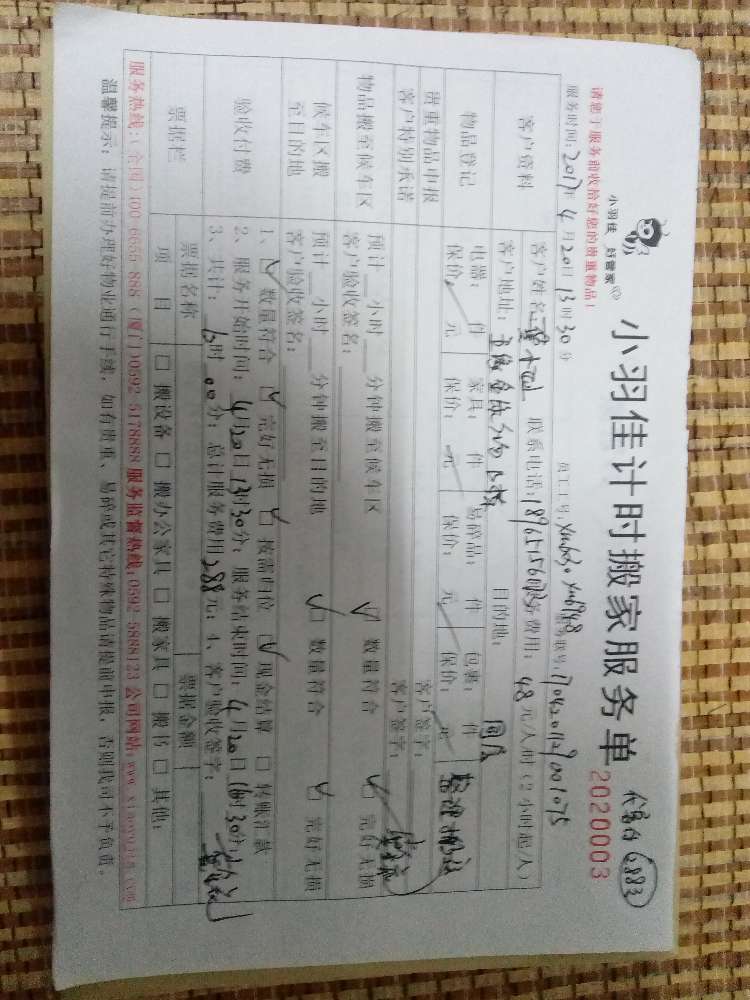 小羽佳 好管家
小羽佳计时搬家服务单
6883
2020003
请您于服务前收拾好您的贵重物品！
服务时间：2017年4月20日13时30分 员工工号：
客户资料
客户姓名： 联系电话： 服务费用：48元/人/时（2小时起/人）
客户地址： 目的地：
物品登记
电器： 件 家具： 件 易碎品： 件 包裹： 件
保价： 元 保价： 元 保价： 元 保价： 元
贵重物品申报 客户签字：
客户特别承诺 客户签字：
物品搬至候车区
预计 小时 分钟搬至候车区 ☑ 数量符合 ☑ 完好无损
客户验收签名：
候车区搬至目的地
预计 小时 分钟搬至目的地 ☑ 数量符合 ☑ 完好无损
客户验收签名：
验收付费
1、☑ 数量符合 ☑ 完好无损 ☑ 按需归位 ☑ 现金结算 □ 转账汇款
2、服务开始时间：4月20日13时30分；服务结束时间：4月20日16时30分；
3、共计： 时00分；总计服务费用288元；4、客户验收签字：
票据栏
票据名称 票据金额
项 目 □ 搬设备 □ 搬办公家具 □ 搬家具 □ 搬书 □ 其他：
服务热线：（全国）400 6655 888（厦门）0592 5178888 服务监督热线：0592 5888123 公司网站：
温馨提示：请提前办理好物业通行手续，如有贵重、易碎或其它特殊物品请提前申报，否则我司不予负责。